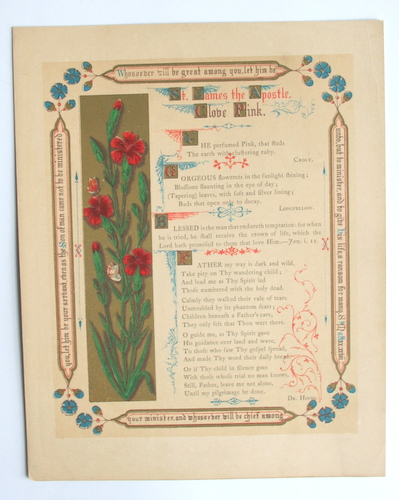 Whosoever will be great among you, let him be
your minister, and whosoever will be chief among
you, let him be your servant, even as the Son of man came not to be ministered
unto, but to minister, and to give his life a ransom for many. S. Matt. xx.
St. James the Apostle.
Clove Pink.
THE perfumed Pink, that studs
The earth with clustering ruby.
CROLY.
GORGEOUS flowerets in the sunlight shining;
Blossoms flaunting in the eye of day;
(Tapering) leaves, with soft and silver lining;
Buds that open only to decay.
LONGFELLOW.
BLESSED is the man that endureth temptation: for when
he is tried, he shall receive the crown of life, which the
Lord hath promised to them that love Him.—Jas. i. 12.
FATHER my way is dark and wild,
Take pity on Thy wandering child;
And lead me as Thy Spirit led
Those numbered with the holy dead.
Calmly they walked their vale of tears
Untroubled by its phantom fears;
Children beneath a Father's care,
They only felt that Thou wert there.
O guide me, as Thy Spirit gave
His guidance over land and wave,
To those who first Thy gospel spread,
And made Thy word their daily bread.
Or if Thy child in silence goes
With those whose trial no man knows,
Still, Father, leave me not alone,
Until my pilgrimage be done.
DR.